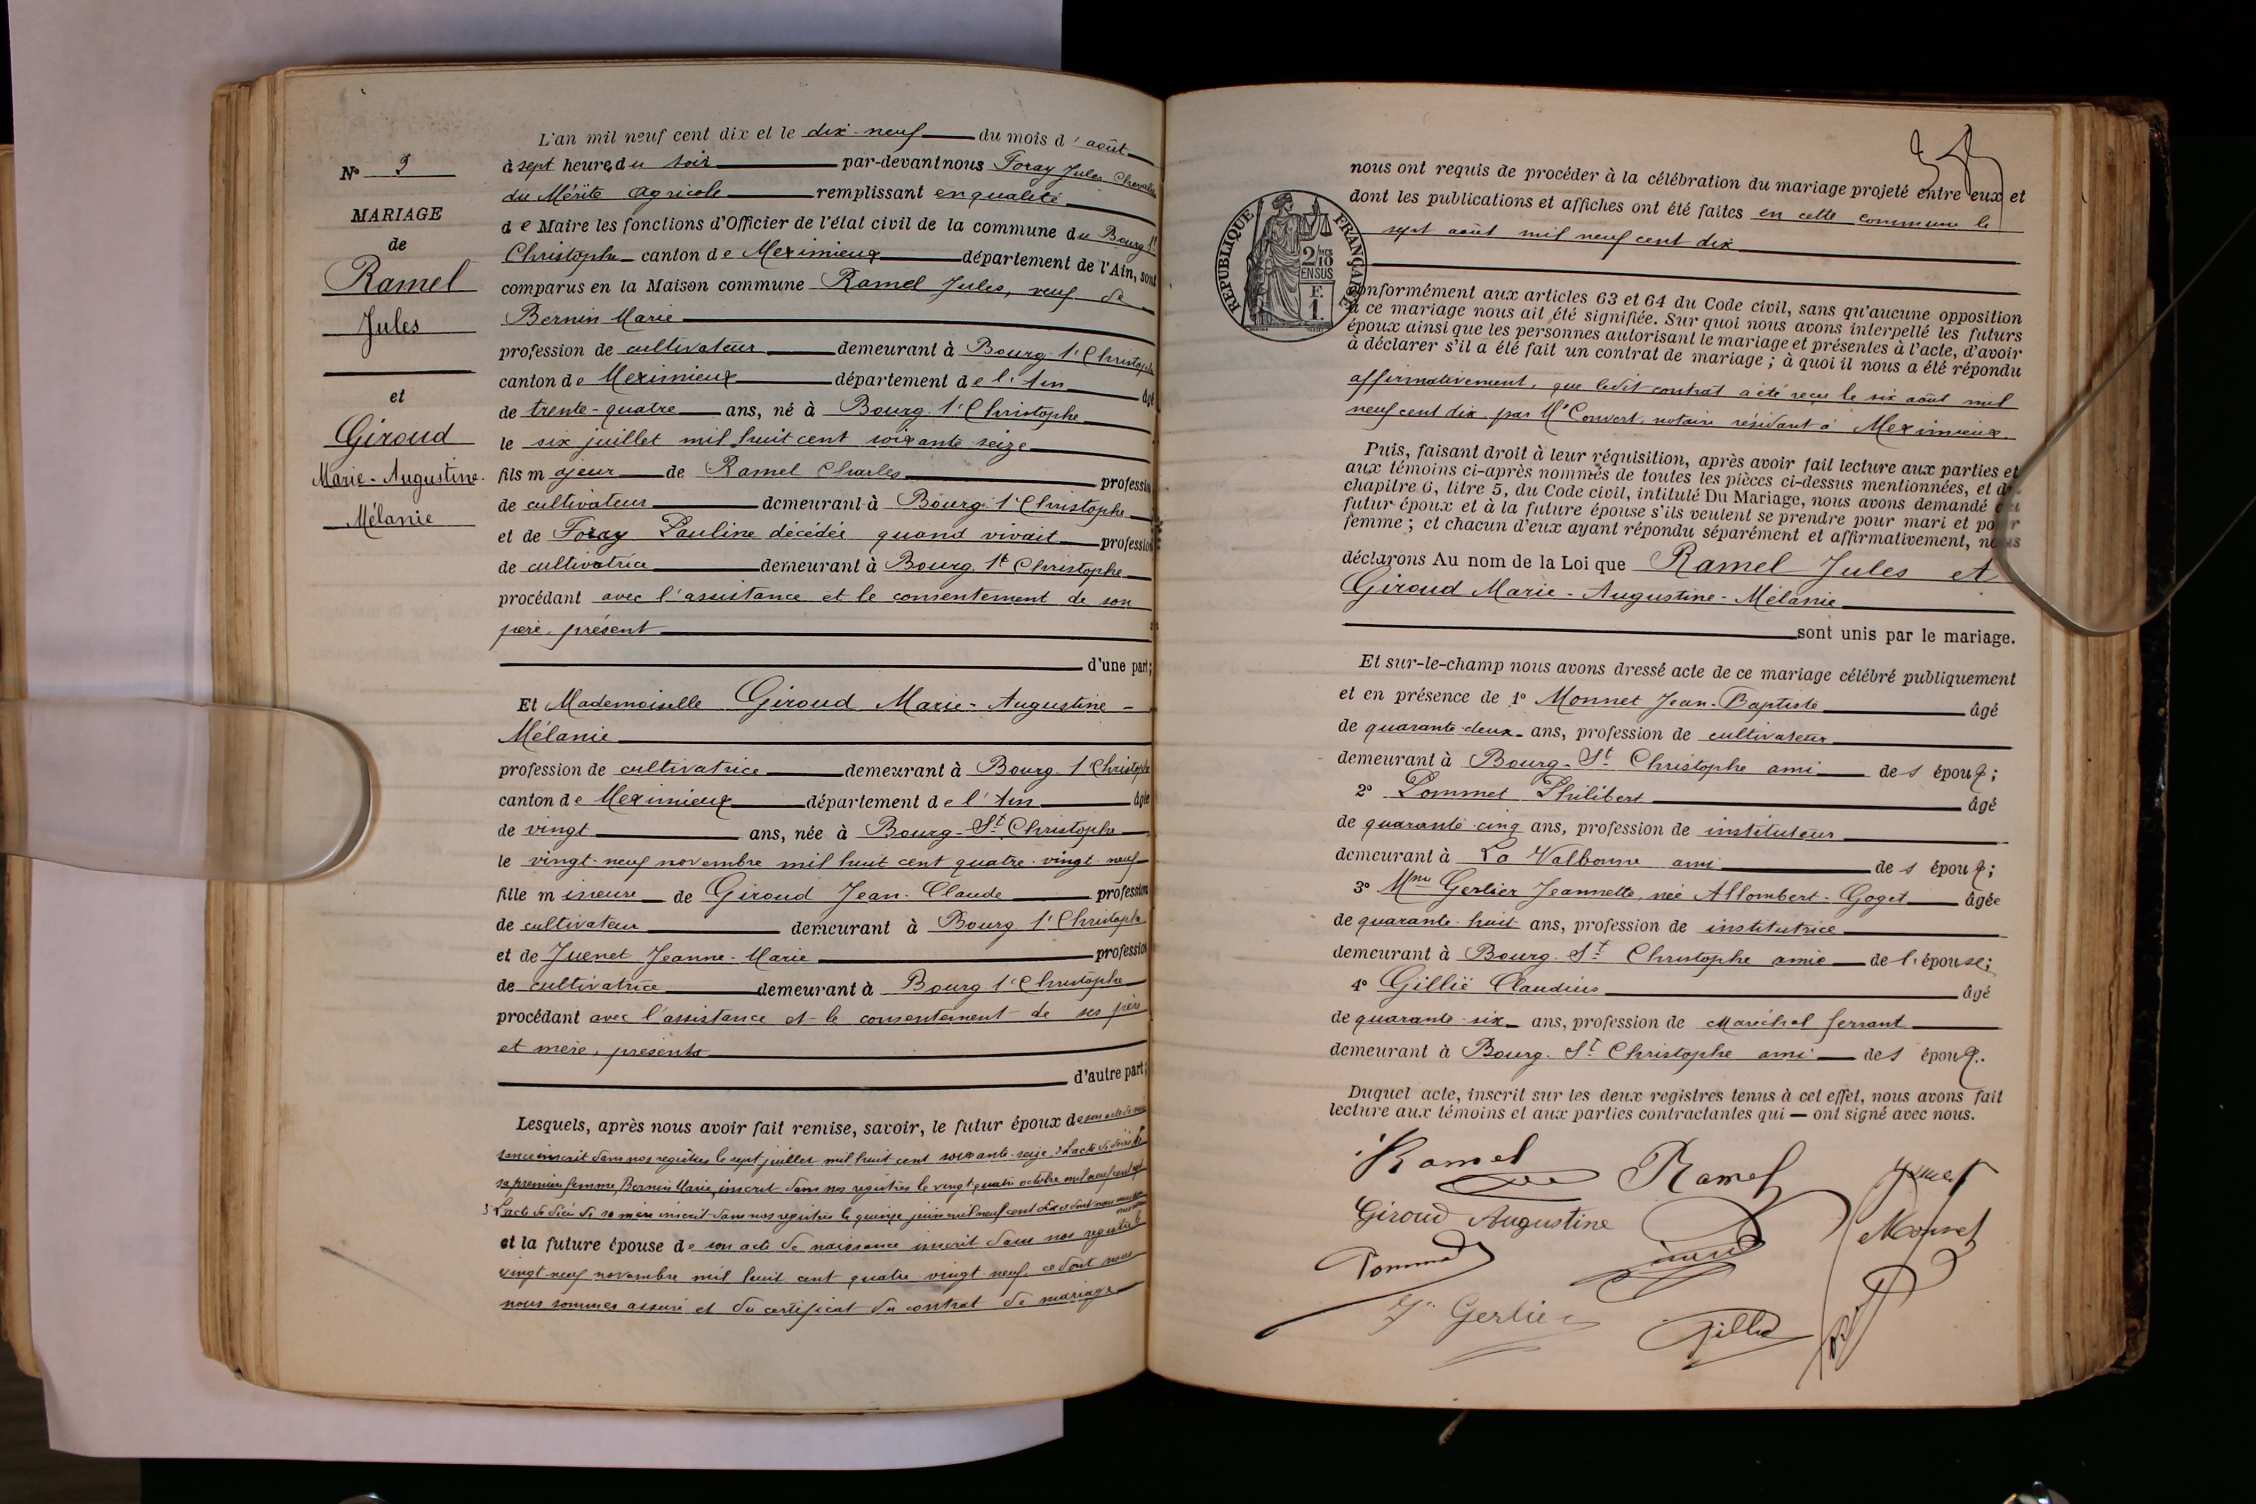 L'an mil neuf cent dix et le dix-neuf du mois d'août
à sept heures du soir par-devant nous Foray Jules Chevalier
du Mérite agricole remplissant en qualité
de Maire les fonctions d'Officier de l'état civil de la commune du Bourg St
Christophe canton de Meximieux département de l'Ain, sont
comparus en la Maison commune Ramel Jules, veuf de
Bernin Marie
profession de cultivateur demeurant à Bourg St Christophe
canton de Meximieux département de l'Ain âgé
de trente-quatre ans, né à Bourg St Christophe
le six juillet mil huit cent soixante seize
fils majeur de Ramel Charles profession
de cultivateur demeurant à Bourg St Christophe
et de Foray Pauline décédée quand vivait profession
de cultivatrice demeurant à Bourg St Christophe
procédant avec l'assistance et le consentement de son
père, présent
d'une part;
Et Mademoiselle Giroud Marie-Augustine-
Mélanie
profession de cultivatrice demeurant à Bourg St Christophe
canton de Meximieux département de l'Ain âgée
de vingt ans, née à Bourg-St Christophe
le vingt-neuf novembre mil huit cent quatre-vingt-neuf
fille mineure de Giroud Jean-Claude profession
de cultivateur demeurant à Bourg St Christophe
et de Juenet Jeanne-Marie profession
de cultivatrice demeurant à Bourg St Christophe
procédant avec l'assistance et le consentement de ses père
et mère, présents
d'autre part;
Lesquels, après nous avoir fait remise, savoir, le futur époux de son acte de nais
sance inscrit dans nos registres le sept juillet mil huit cent soixante-seize, 2° L'acte de décès de
sa première femme, Bernin Marie, inscrit dans nos registres le vingt quatre octobre mil neuf cent
3° L'acte de décès de sa mère inscrit dans nos registres le quinze juin mil neuf cent dix ce dont nous
et la future épouse de son acte de naissance inscrit dans nos registres le
vingt-neuf novembre mil huit cent quatre vingt-neuf, ce dont nous
nous sommes assuré et du certificat du contrat de mariage
N° 9
MARIAGE
de
Ramel
Jules
et
Giroud
Marie-Augustine-
Mélanie
RÉPUBLIQUE FRANÇAISE
2/10
EN SUS
F.
1.
nous ont requis de procéder à la célébration du mariage projeté entre eux et
dont les publications et affiches ont été faites en cette commune le
sept août mil neuf cent dix
conformément aux articles 63 et 64 du Code civil, sans qu'aucune opposition
à ce mariage nous ait été signifiée. Sur quoi nous avons interpellé les futurs
époux ainsi que les personnes autorisant le mariage et présentes à l'acte, d'avoir
à déclarer s'il a été fait un contrat de mariage; à quoi il nous a été répondu
affirmativement, que ledit contrat a été reçu le six août mil
neuf cent dix par Me Convert, notaire résidant à Meximieux.
Puis, faisant droit à leur réquisition, après avoir fait lecture aux parties et
aux témoins ci-après nommés de toutes les pièces ci-dessus mentionnées, et du
chapitre 6, titre 5, du Code civil, intitulé Du Mariage, nous avons demandé au
futur époux et à la future épouse s'ils veulent se prendre pour mari et pour
femme; et chacun d'eux ayant répondu séparément et affirmativement, nous
déclarons Au nom de la Loi que Ramel Jules et
Giroud Marie-Augustine-Mélanie
sont unis par le mariage.
Et sur-le-champ nous avons dressé acte de ce mariage célébré publiquement
et en présence de 1° Monnet Jean-Baptiste âgé
de quarante-deux ans, profession de cultivateur
demeurant à Bourg-St Christophe ami des époux;
2° Pommet Philibert âgé
de quarante-cinq ans, profession de instituteur
demeurant à La Valbonne ami des époux;
3° Mme Gerlier Jeannette, née Allombert-Goget âgée
de quarante-huit ans, profession de institutrice
demeurant à Bourg-St Christophe amie de l'épouse;
4° Gillié Claudius âgé
de quarante-six ans, profession de Maréchal ferrant
demeurant à Bourg-St Christophe ami des époux.
Duquel acte, inscrit sur les deux registres tenus à cet effet, nous avons fait
lecture aux témoins et aux parties contractantes qui — ont signé avec nous.
Ramel Ramel Juenet
Giroud Augustine Monnet
Pommet Giroud
Jte Gerlier Gillié